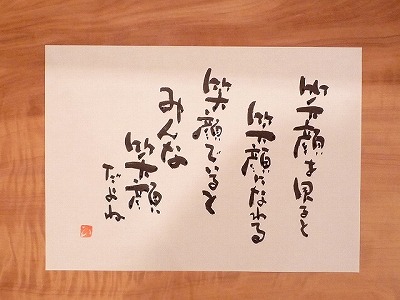 笑顔を見ると
笑顔になれる
笑顔でいると
みんな
笑顔
だよね